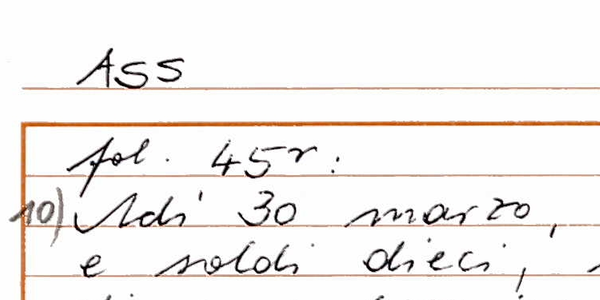 ASS
fol. 45r:
10) Adi 30 marzo,
e soldi dieci,